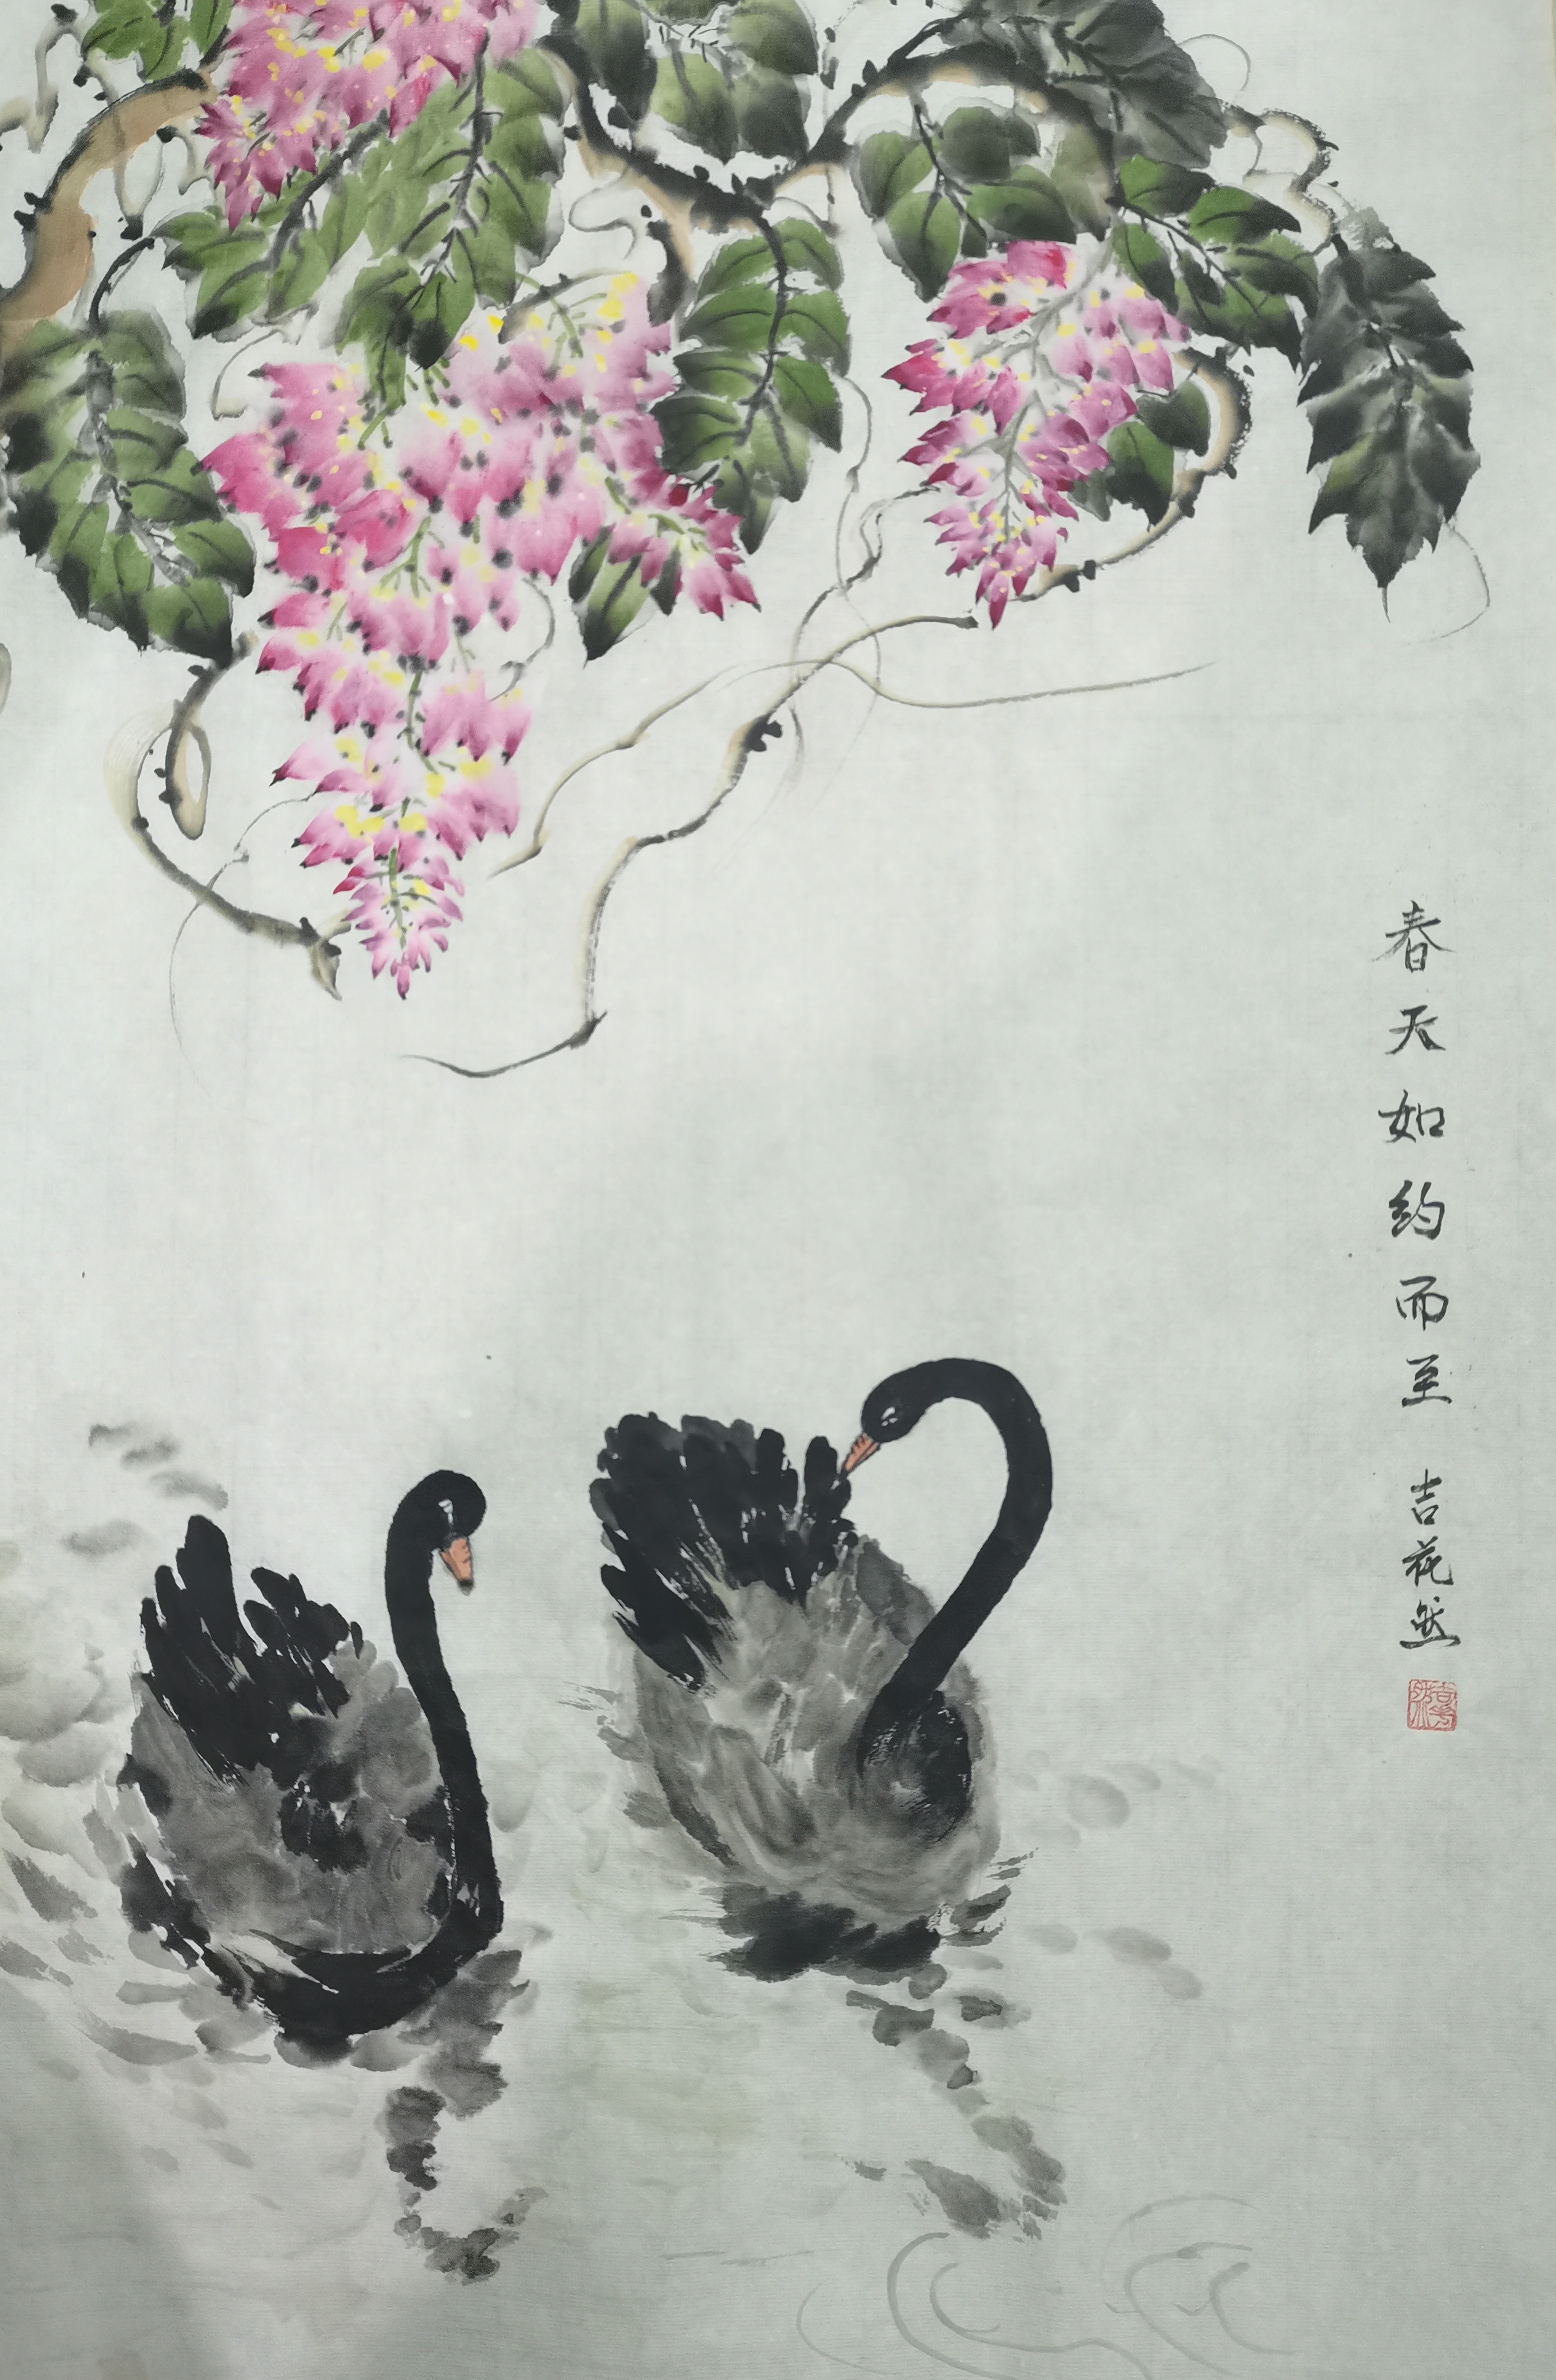 春天如约而至 吉花然